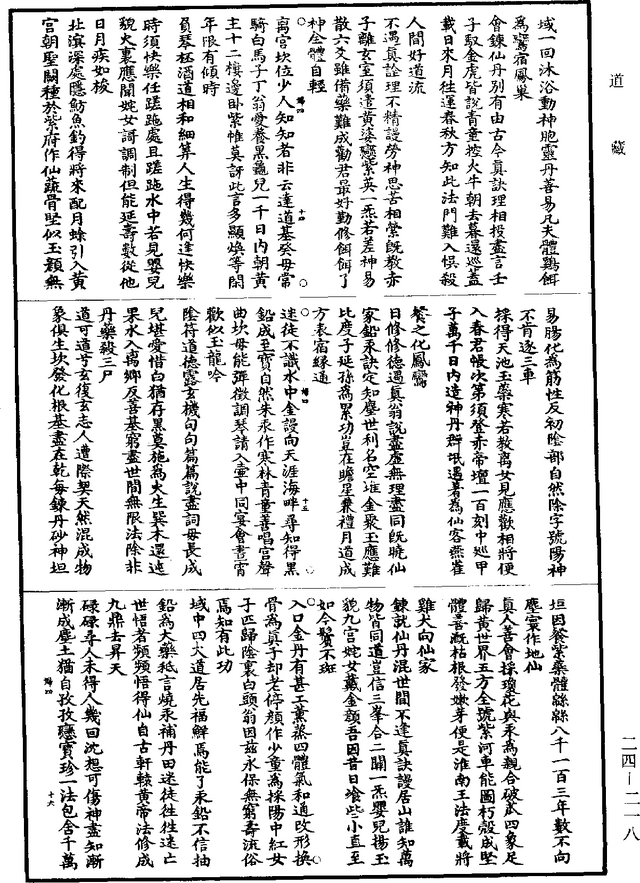 道藏
域一回沐浴動神胞靈丹善易凡夫體鷄餌
為鸞宿鳳巢
會鍊仙丹別有由古今真訣理相投盡言壬
子馭金虎皆說青童控火牛朝去暮還巡蓋
載日來月往運春秋方知此法門難入悞殺
人間好道流
不遇真詮理不精謾勞神思苦相縈旣教赤
子離玄室須遣黃婆戀紫英一炁若差神易
散六爻雖備藥難成勸君最好勤修餌餌了
神全體自輕
离宮坎位少人知知者非云達道基癸母常
騎白馬子丁翁愛養黑龜兒一千日內朝黃
主十二樓邊卧紫惟莫訝此言多顯煥等閑
年限有傾時
負琴杯酒道相和細筭人生得幾何逢快樂
時須快樂任蹉跎處且蹉跎水中若見嬰兒
貌火裏應聞姹女謌調制但能延壽數從他
日月疾如梭
北濵深處隱魴魚釣得將來配月蜍引入黃
宮朝聖闕種於紫府作仙蔬骨堅似玉顏無
易腸化為筋性反初陰部自然除字號陽神
不肯逐三車
採得天池玉藥寒若教离女見應歡相將便
入春君帳次第須登赤帝壇一百刻中巡甲
子萬千日內造神丹群氓遇著為仙客燕雀
餐之化鳳鸞
日修修德遇真翁說盡虛無理盡同旣曉仙
家鉛汞訣定知塵世利名空堆金聚玉應難
比度子延孫為累功豈在瞻星兼禮月道成
方表宿緣通
迷徒不識水中金謾向天涯海畔尋知得黑
鉛成至寶自然朱汞作寒林青童善唱宮聲
曲坎母能彈徵調琴請入壺中同宴會晝宵
歡似玉龍吟
陰符道德露玄機句句篇篇說盡詞母長成
兒堪愛惜白猶存黑莫施為火生巽木還遶
果水入离鄉反善基窮盡世間無限法除非
丹藥殺三尸
道可道兮玄復玄志人遭際契天然混成物
象俱生坎發化根基盡在乾每鍊丹砂神坦
坦因餐紫藥體緜緜八千一百三年數不向
塵寰作地仙
真人善會採瓊花與汞為親合破瓜四象足
歸黃世界五方全號紫河車能圖朽殼成堅
體善漑枯根發嫩芽便是淮南王法度載將
雞犬向仙家
鍊就仙丹混世間不達真訣謾居山誰知萬
物皆同道豈信三峯合二關一炁嬰兒揚玉
貌九宮姹女戴金顏吾因昔日飡些小直至
如今鬢不斑
入口金丹有甚工薰蒸四體氣和通改形換
骨為真子却老停顏作少童為採陽中紅女
子匹歸陰裏白頭翁因兹永保無窮壽流俗
焉知有此功
域中四大道居先福觧焉能了汞鉛不信抽
鉛為大藥秪言燒汞補丹田迷徒徃徃迷亡
世悟者頻頻悟得仙自古軒轅黃帝法修成
九鼎去昇天
碌碌尋人未得人幾回沈想可傷神盡知漸
漸成塵土猶自孜孜戀寶珍一法包含千萬
二四—二一八